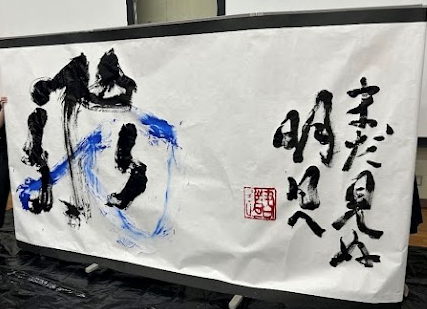 まだ見ぬ
明日へ